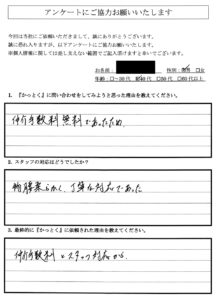 アンケートにご協力お願いいたします
今回は当社にご依頼いただきまして、誠にありがとうございます。
誠に恐れ入りますが、以下アンケートにご協力お願いいたします。
※個人情報に関しては差し支えない範囲でご記入頂けますと幸いでございます。
お名前： 性別：男 □女
年齢：□～30代 40代 □50代 □60代以上
1. 『かっとく』に問い合わせをしてみようと思った理由を教えてください。
仲介手数料無料であったため。
2. スタッフの対応はどうでしたか？
物腰柔らかく、丁寧な対応であった
3. 最終的に『かっとく』に依頼された理由を教えてください。
仲介手数料とスタッフ対応から